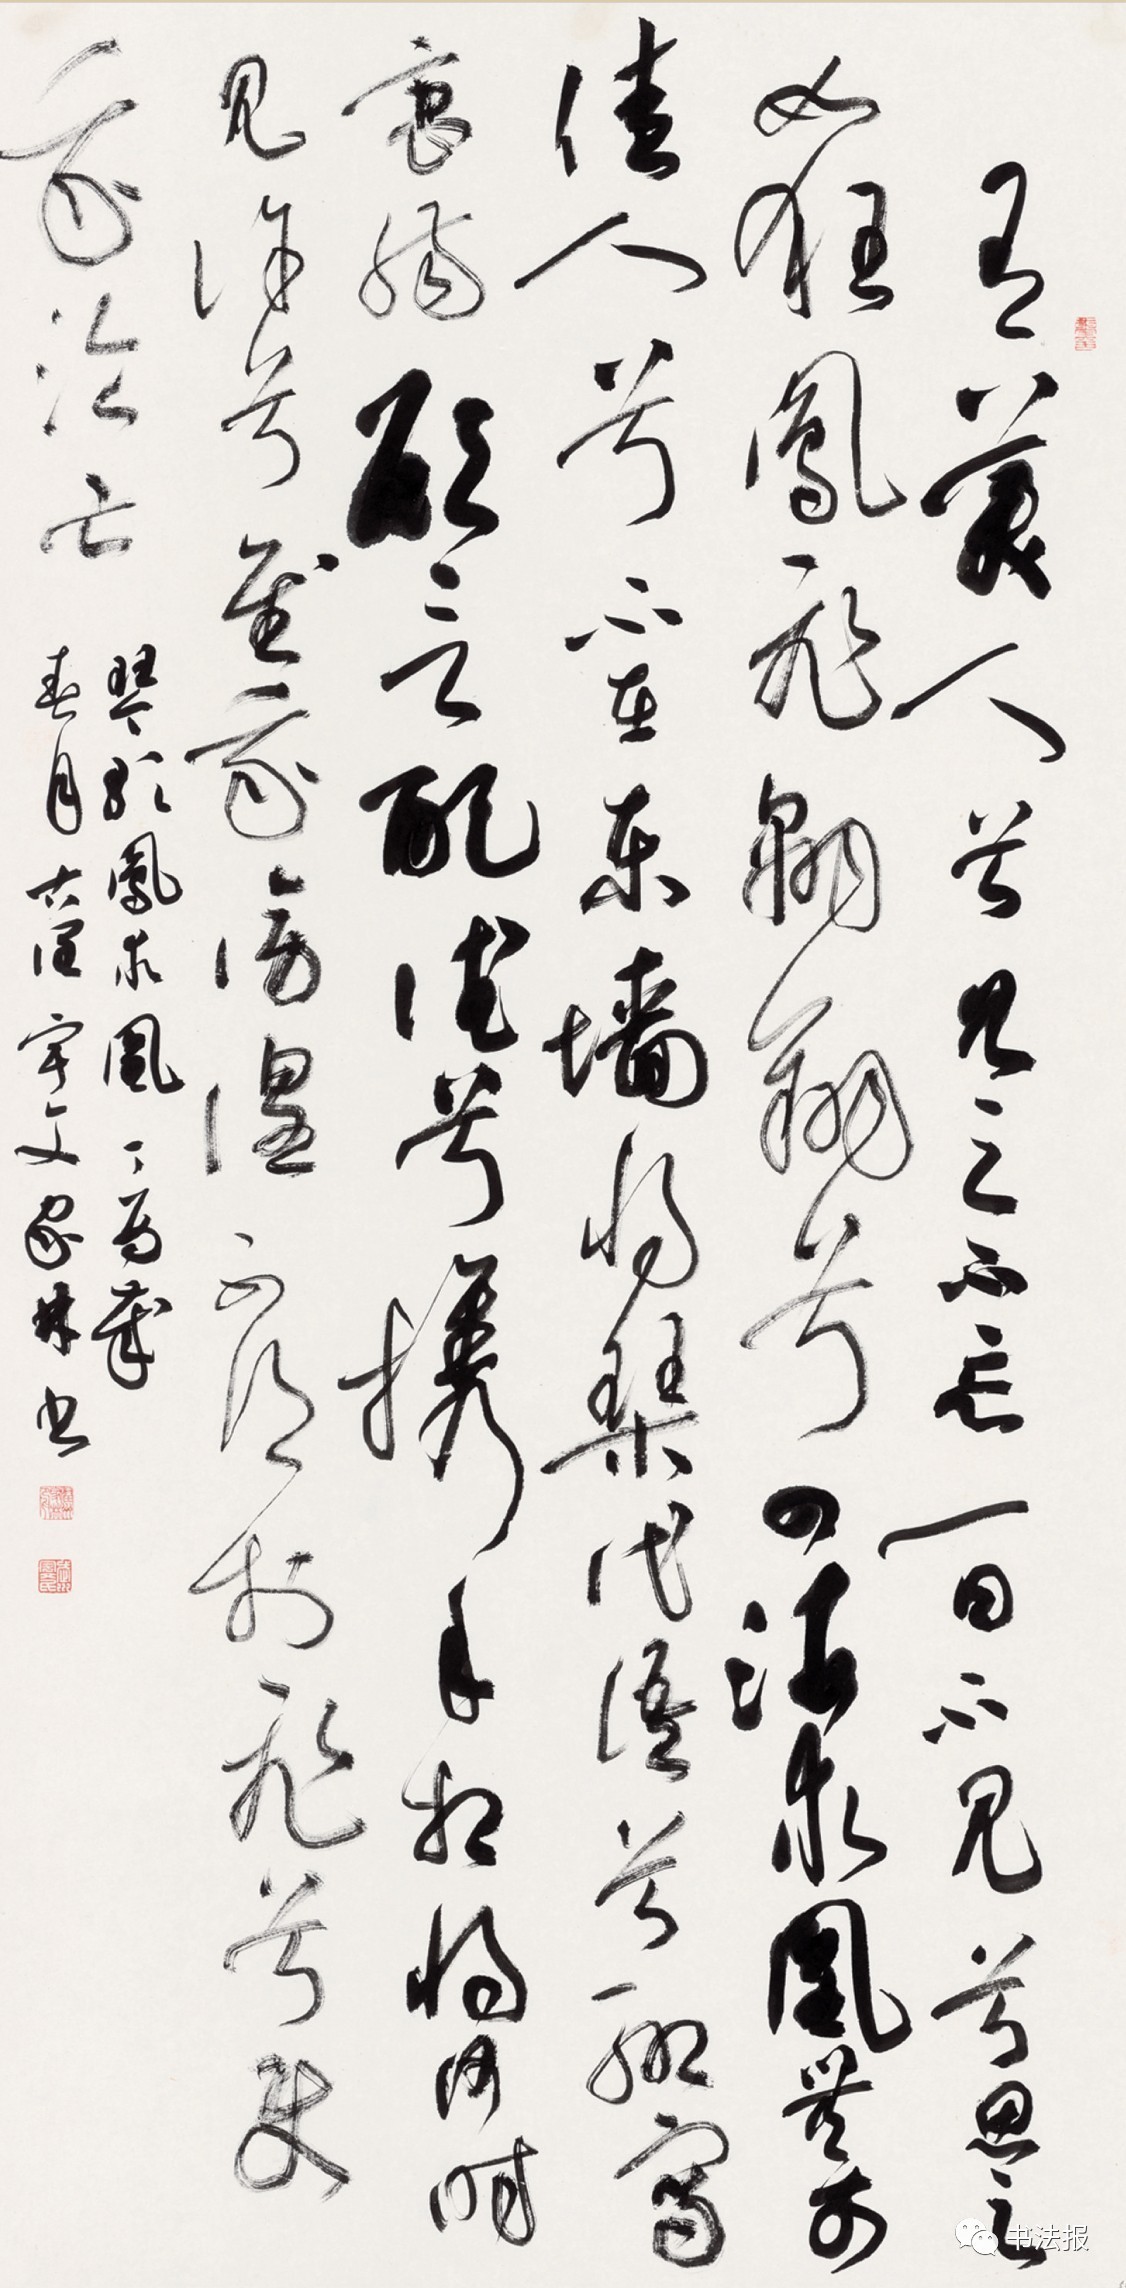 有美人兮見之不忘一日不見兮思之
如狂鳳飛翱翔兮四海求凰無奈
佳人兮不在東墻將琴代語兮聊寫
衷腸願言配德兮攜手相將何時
見許兮慰我傍徨不得於飛兮使
我淪亡
琴歌鳳求凰丁酉歲
春月宇文家林書
书法报